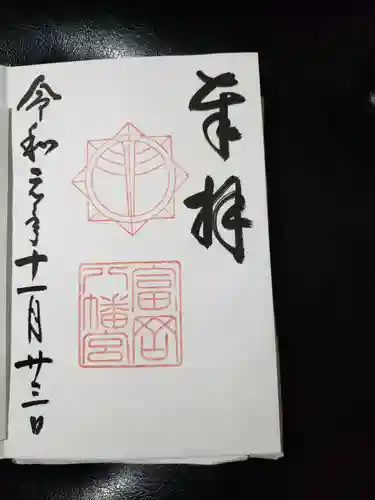 奉拝
富岡
八幡宮
令和元年十一月廿三日